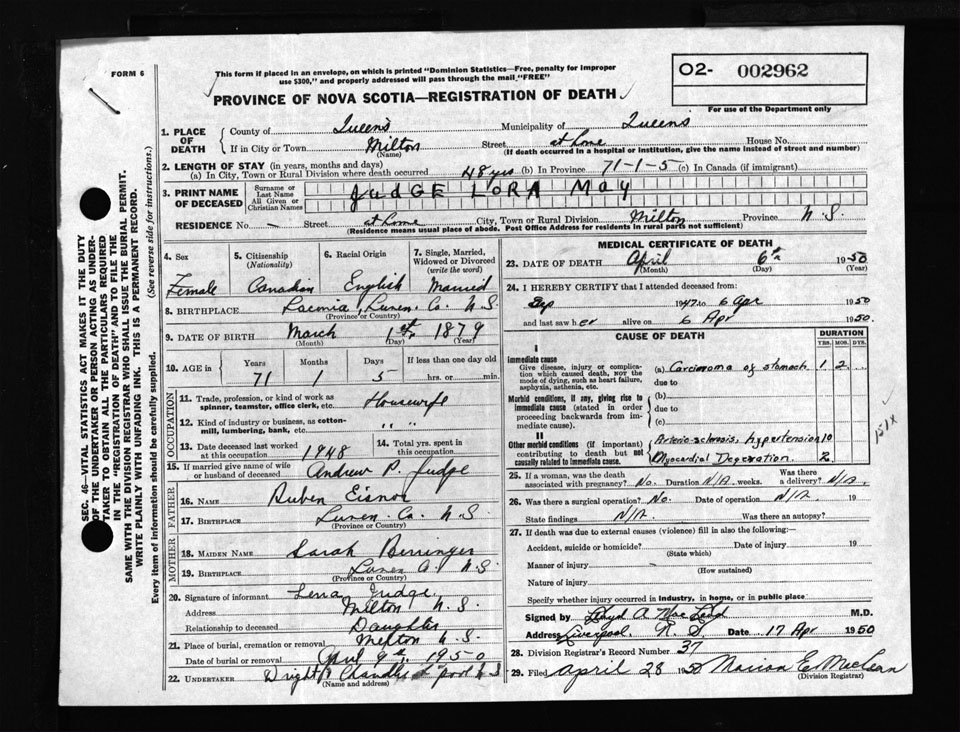 FORM 6
This form if placed in an envelope, on which is printed "Dominion Statistics—Free, penalty for improper
use $300," and properly addressed will pass through the mail "FREE"
O2- 002962
For use of the Department only
PROVINCE OF NOVA SCOTIA—REGISTRATION OF DEATH
SEC. 46—VITAL STATISTICS ACT MAKES IT THE DUTY
OF THE UNDERTAKER OR PERSON ACTING AS UNDER-
TAKER TO OBTAIN ALL THE PARTICULARS REQUIRED
IN THE "REGISTRATION OF DEATH" AND TO FILE THE
SAME WITH THE DIVISION REGISTRAR WHO SHALL ISSUE THE BURIAL PERMIT.
WRITE PLAINLY WITH UNFADING INK. THIS IS A PERMANENT RECORD.
Every item of information should be carefully supplied. (See reverse side for instructions.)
1. PLACE OF DEATH
County of Queens Municipality of Queens
If in City or Town Milton Street at home House No.
(Name) (If death occurred in a hospital or institution, give the name instead of street and number)
2. LENGTH OF STAY (in years, months and days)
(a) In City, Town or Rural Division where death occurred 48 yrs (b) In Province 71-1-5 (c) In Canada (if immigrant)
3. PRINT NAME OF DECEASED
Surname or Last Name
All Given or Christian Names
JUDGE LORA MAY
RESIDENCE No. — Street at home City, Town or Rural Division Milton Province N.S.
(Residence means usual place of abode. Post Office Address for residents in rural parts not sufficient)
4. Sex
Female
5. Citizenship (Nationality)
Canadian
6. Racial Origin
English
7. Single, Married, Widowed or Divorced (write the word)
Married
8. BIRTHPLACE Laconia, Lunen. Co. N S
(Province or Country)
9. DATE OF BIRTH March 1st 1879
(Month) (Day) (Year)
10. AGE in Years Months Days If less than one day old
71 1 5 hrs. or min.
OCCUPATION
11. Trade, profession, or kind of work as
spinner, teamster, office clerk, etc. Housewife
12. Kind of industry or business, as cotton-
mill, lumbering, bank, etc. " " "
13. Date deceased last worked at this occupation 1948
14. Total yrs. spent in this occupation
15. If married give name of wife or husband of deceased Andrew P. Judge
FATHER
16. NAME Ruben Eisnor
17. BIRTHPLACE Lunen. Co. N S.
(Province or Country)
MOTHER
18. MAIDEN NAME Sarah Berringer
19. BIRTHPLACE Lunen N.S.
(Province or Country)
20. Signature of informant Lena Judge
Address Milton N.S.
Relationship to deceased Daughter
21. Place of burial, cremation or removal N.S.
Date of burial or removal April 9th, 1950
22. UNDERTAKER L'pool N S
(Name and address)
MEDICAL CERTIFICATE OF DEATH
23. DATE OF DEATH April 6th 1950
(Month) (Day) (Year)
24. I HEREBY CERTIFY that I attended deceased from:
Sep 1947 to 6 Apr 1950
and last saw her alive on 6 Apr 1950.
CAUSE OF DEATH
DURATION
YRS. MOS. DYS.
I
Immediate cause
Give disease, injury or complica-
tion which caused death, NOT the
mode of dying, such as heart failure,
asphyxia, asthenia, etc.
(a) Carcinoma of stomach 1 2
due to
Morbid conditions, if any, giving rise to
immediate cause (stated in order
proceeding backwards from im-
mediate cause).
(b)
due to
(c)
II
Other morbid conditions (if important)
contributing to death but not
causally related to immediate cause.
Arterio-sclerosis, hypertension 10
Myocardial Degeration. 2
151X
25. If a woman, was the death associated with pregnancy? No. Duration N/A weeks. Was there a delivery? N/A.
26. Was there a surgical operation? No. Date of operation N/A 19
State findings N/A Was there an autopsy?
27. If death was due to external causes (violence) fill in also the following:—
Accident, suicide or homicide? Date of injury 19
(State which)
Manner of injury
(How sustained)
Nature of injury
Specify whether injury occurred in industry, in home, or in public place
Signed by Lloyd A. MacLeod M.D.
Address Liverpool, N. S. Date 17 Apr 1950
28. Division Registrar's Record Number 37
29. Filed April 28 1950 Marion E. MacLean
(Division Registrar)